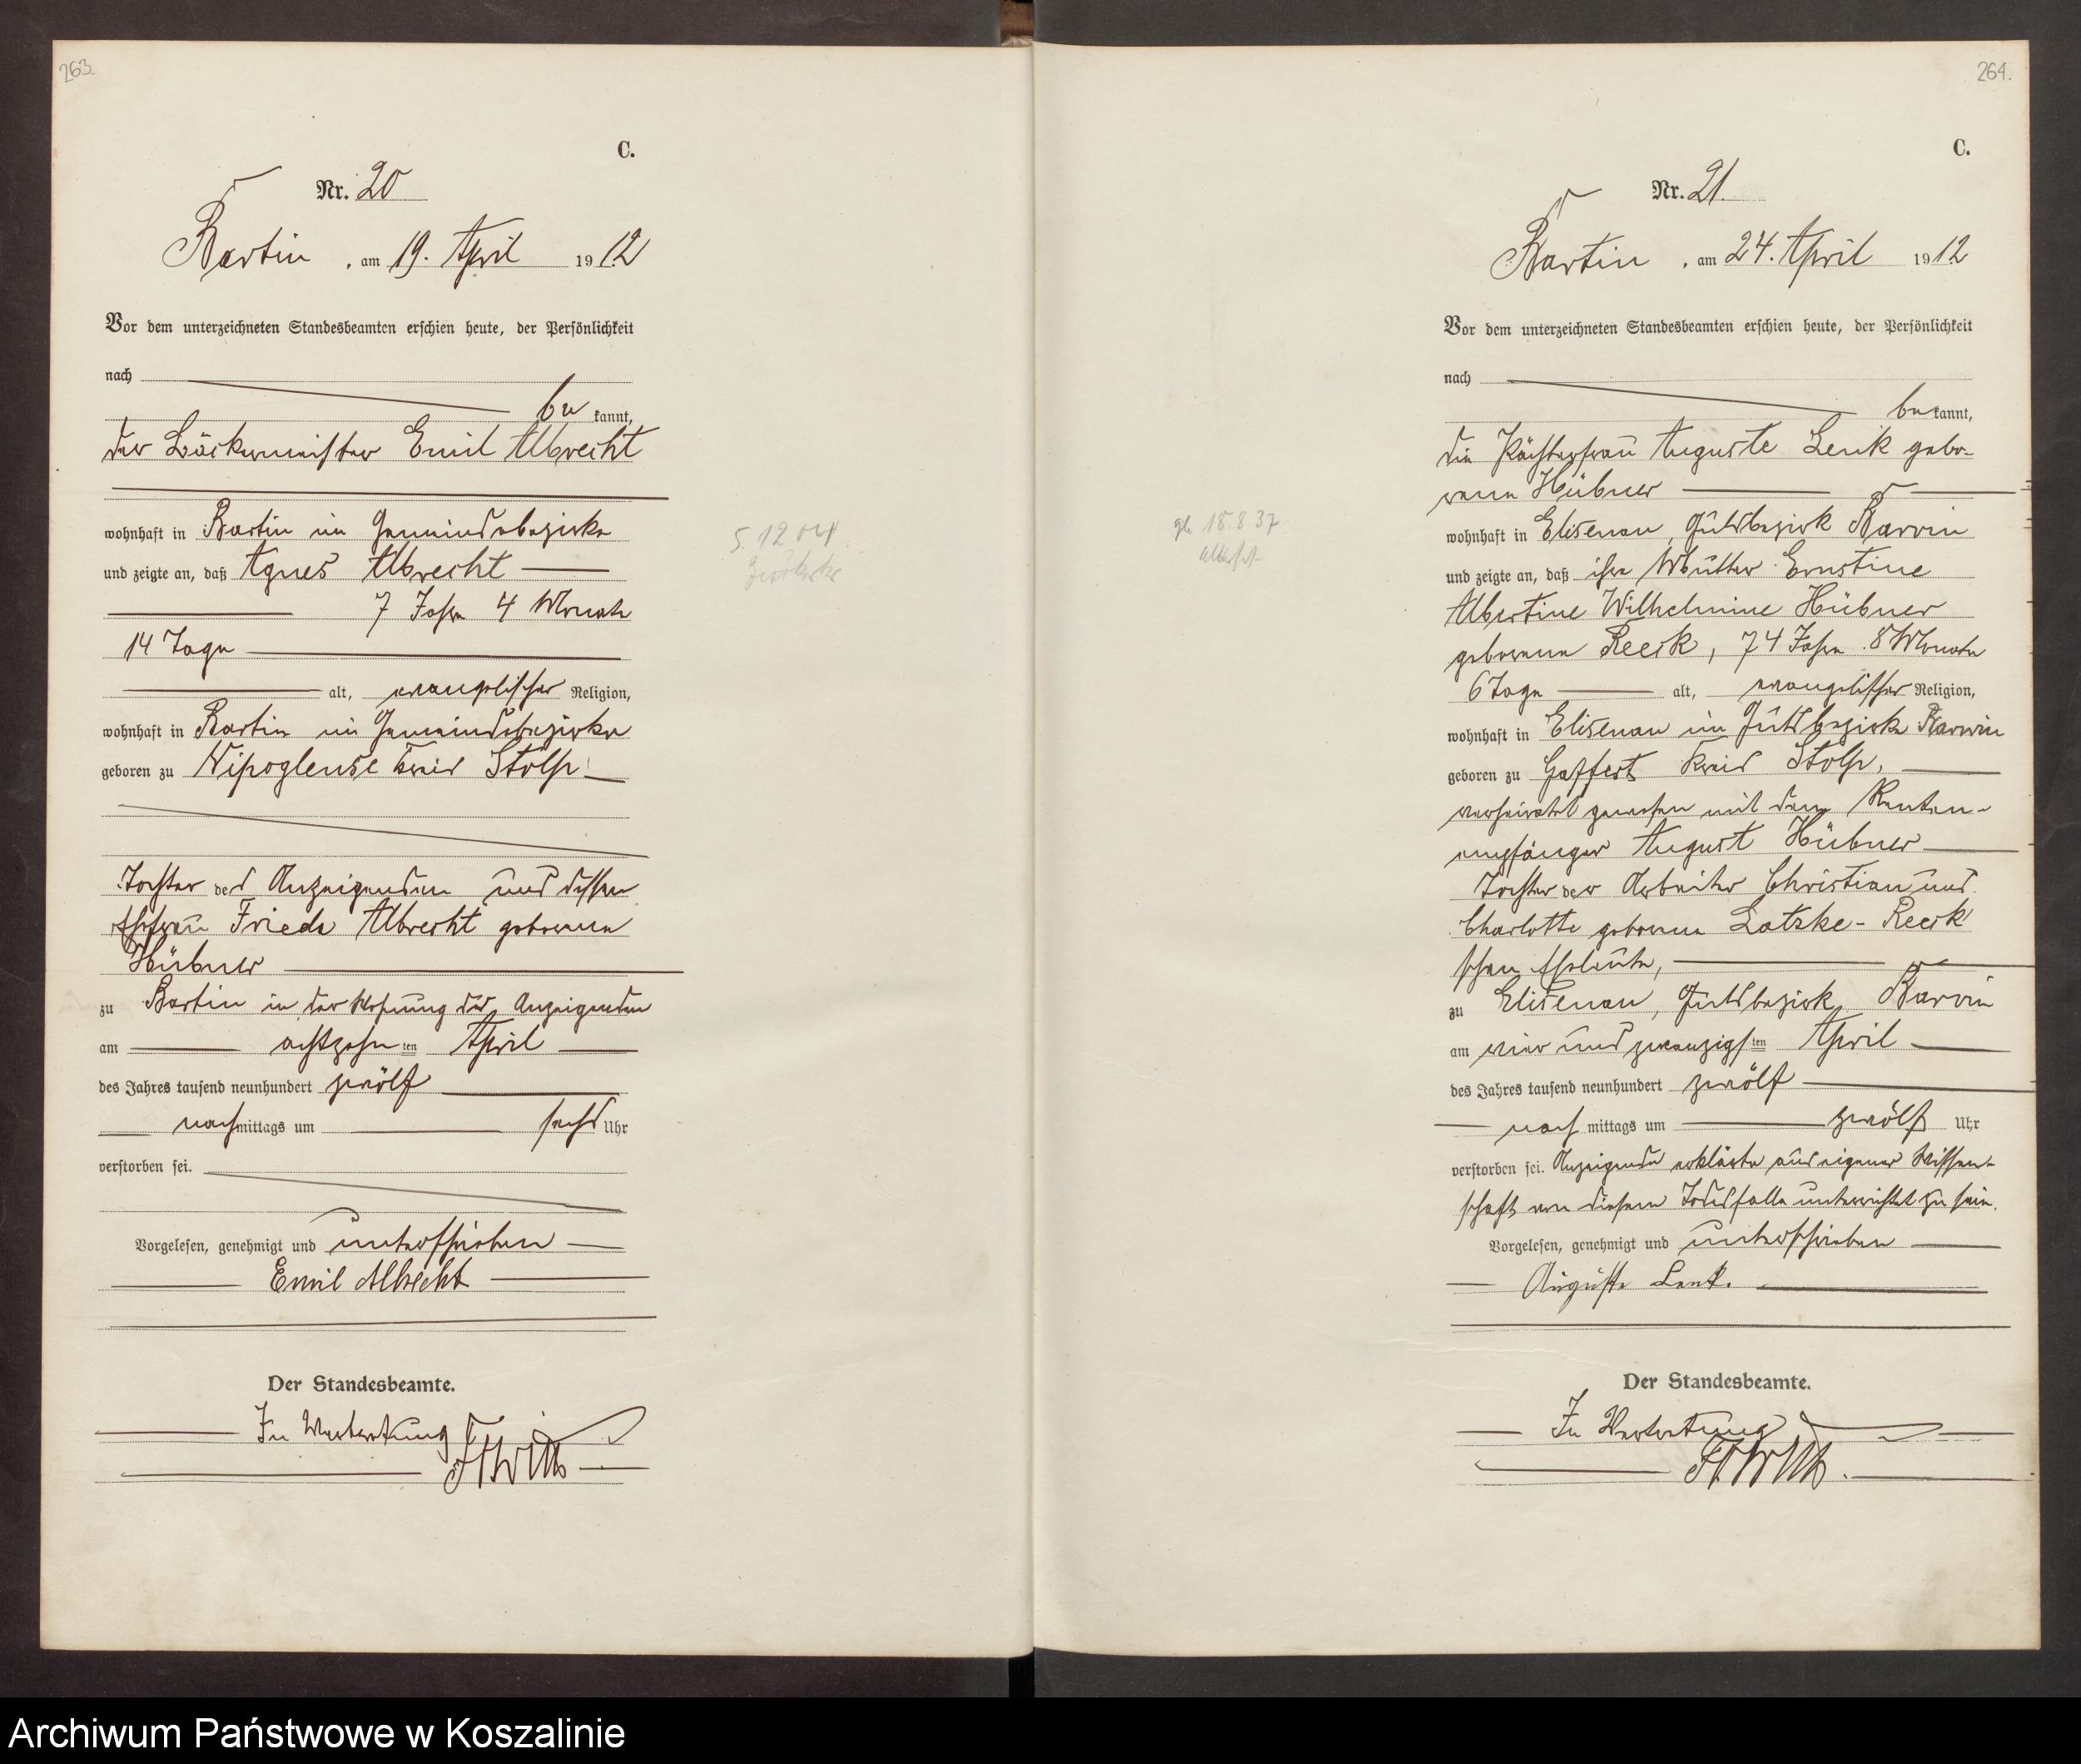 263.
C.
Nr. 20
Bartin, am 19. April 1912
Vor dem unterzeichneten Standesbeamten erschien heute, der Persönlichkeit
nach
be kannt,
der Bäckermeister Emil Albrecht
wohnhaft in Bartin im Gemeindebezirke
und zeigte an, daß Agnes Albrecht
7 Jahre 4 Monate
14 Tage
alt, evangelischer Religion,
wohnhaft in Bartin im Gemeindebezirke
geboren zu Nipoglense Kreis Stolp
Tochter des Anzeigenden und dessen
Ehefrau Frieda Albrecht geborenen
Hübner
zu Bartin in der Wohnung des Anzeigenden
am achtzehn ten April
des Jahres tausend neunhundert zwölf
nachmittags um sechs Uhr
verstorben sei.
Vorgelesen, genehmigt und unterschrieben
Emil Albrecht
Der Standesbeamte.
In Vertretung
5. 12 04
264.
C.
Nr. 21.
Bartin, am 24. April 1912
Vor dem unterzeichneten Standesbeamten erschien heute, der Persönlichkeit
nach
be kannt,
die Pächterfrau Auguste Lenk gebo-
rene Hübner
wohnhaft in Elisenau, Gutsbezirk Barvin
und zeigte an, daß ihre Mutter Ernstine
Albertine Wilhelmine Hübner
geborene Reeck, 74 Jahre 8 Monate
6 Tage alt, evangelischer Religion,
wohnhaft in Elisenau im Gutsbezirke Barvin
geboren zu Gaffert Kreis Stolp,
verheiratet gewesen mit dem Renten-
empfänger August Hübner
Tochter der Arbeiter Christian und
Charlotte geborene Latzke-Reeck
schen Eheleute,
zu Elisenau, Gutsbezirk Barvin
am vier und zwanzigsten April
des Jahres tausend neunhundert zwölf
nach mittags um zwölf Uhr
verstorben sei. Anzeigende erklärte aus eigener Wissen-
schaft von diesem Todesfalle unterrichtet zu sein.
Vorgelesen, genehmigt und unterschrieben
Auguste Lenk.
Der Standesbeamte.
In Vertretung
18.8 37
Archiwum Państwowe w Koszalinie